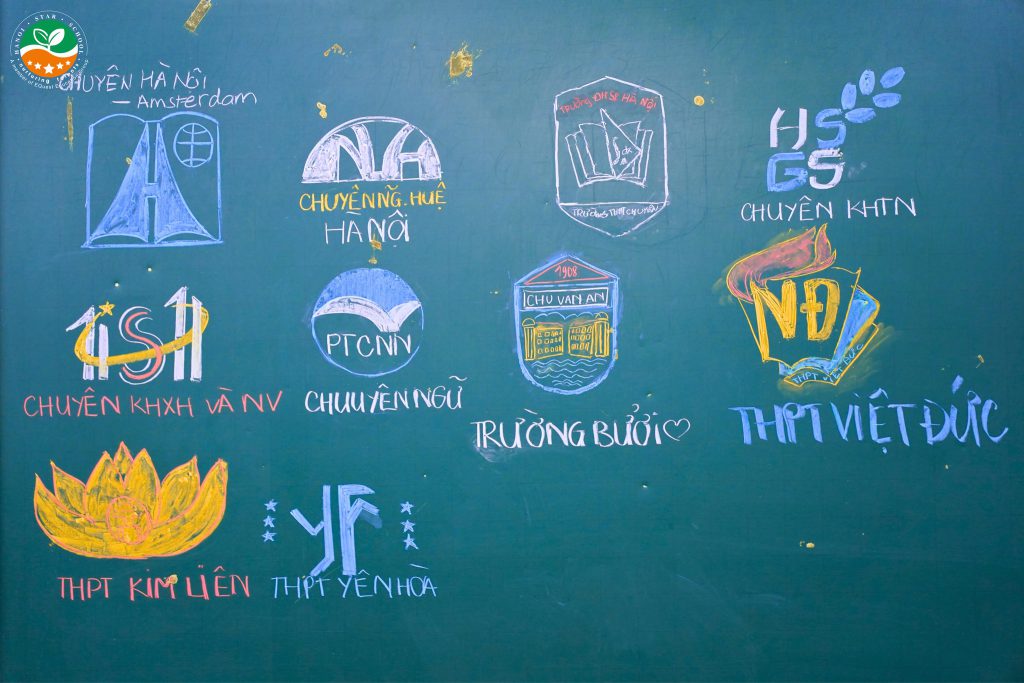 HANOI · STAR · SCHOOL
CHUYÊN HÀ NỘI
– Amsterdam
NH
CHUYÊN NG. HUỆ
HÀ NỘI
TRƯỜNG ĐHSP HÀ NỘI
TRƯỜNG THPT CHUYÊN
HS
GS
CHUYÊN KHTN
CHUYÊN KHXH VÀ NV
PTCNN
CHUUYÊN NGỮ
1908
CHU VAN AN
TRƯỜNG BƯỞI♡
NĐ
THPT VIỆT ĐỨC
THPT VIỆT ĐỨC
THPT KIM LIÊN
THPT YÊN HÒA